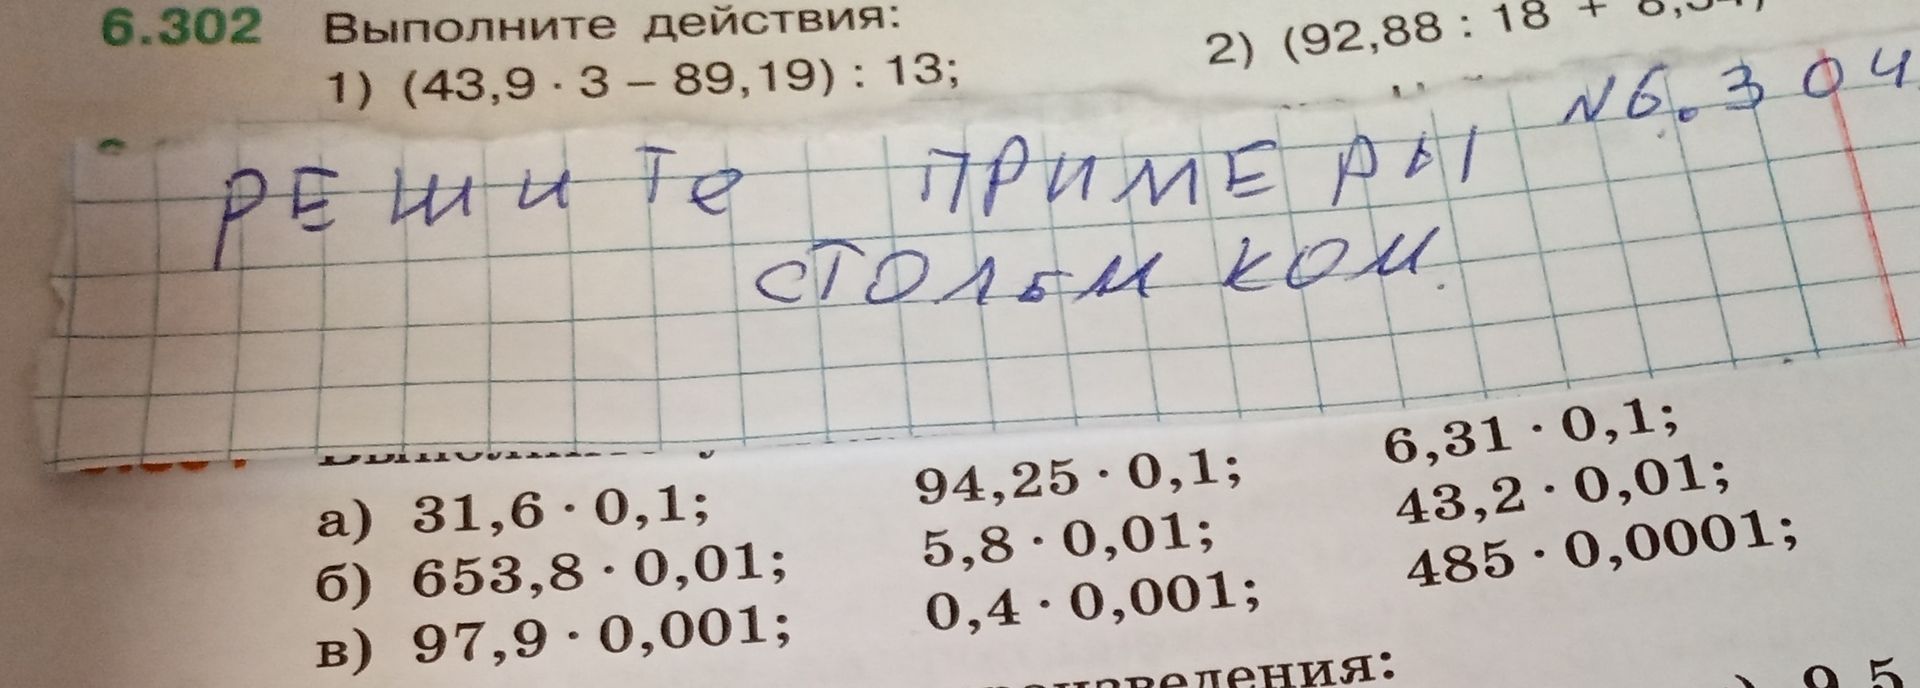 6.302 Выполните действия:
1) (43,9 · 3 – 89,19) : 13;
2) (92,88 : 18 +
РЕШИТе ПРИМЕРЫ №6.304
СТОЛЬИКОМ.
а) 31,6 · 0,1; 94,25 · 0,1; 6,31 · 0,1;
б) 653,8 · 0,01; 5,8 · 0,01; 43,2 · 0,01;
в) 97,9 · 0,001; 0,4 · 0,001; 485 · 0,0001;